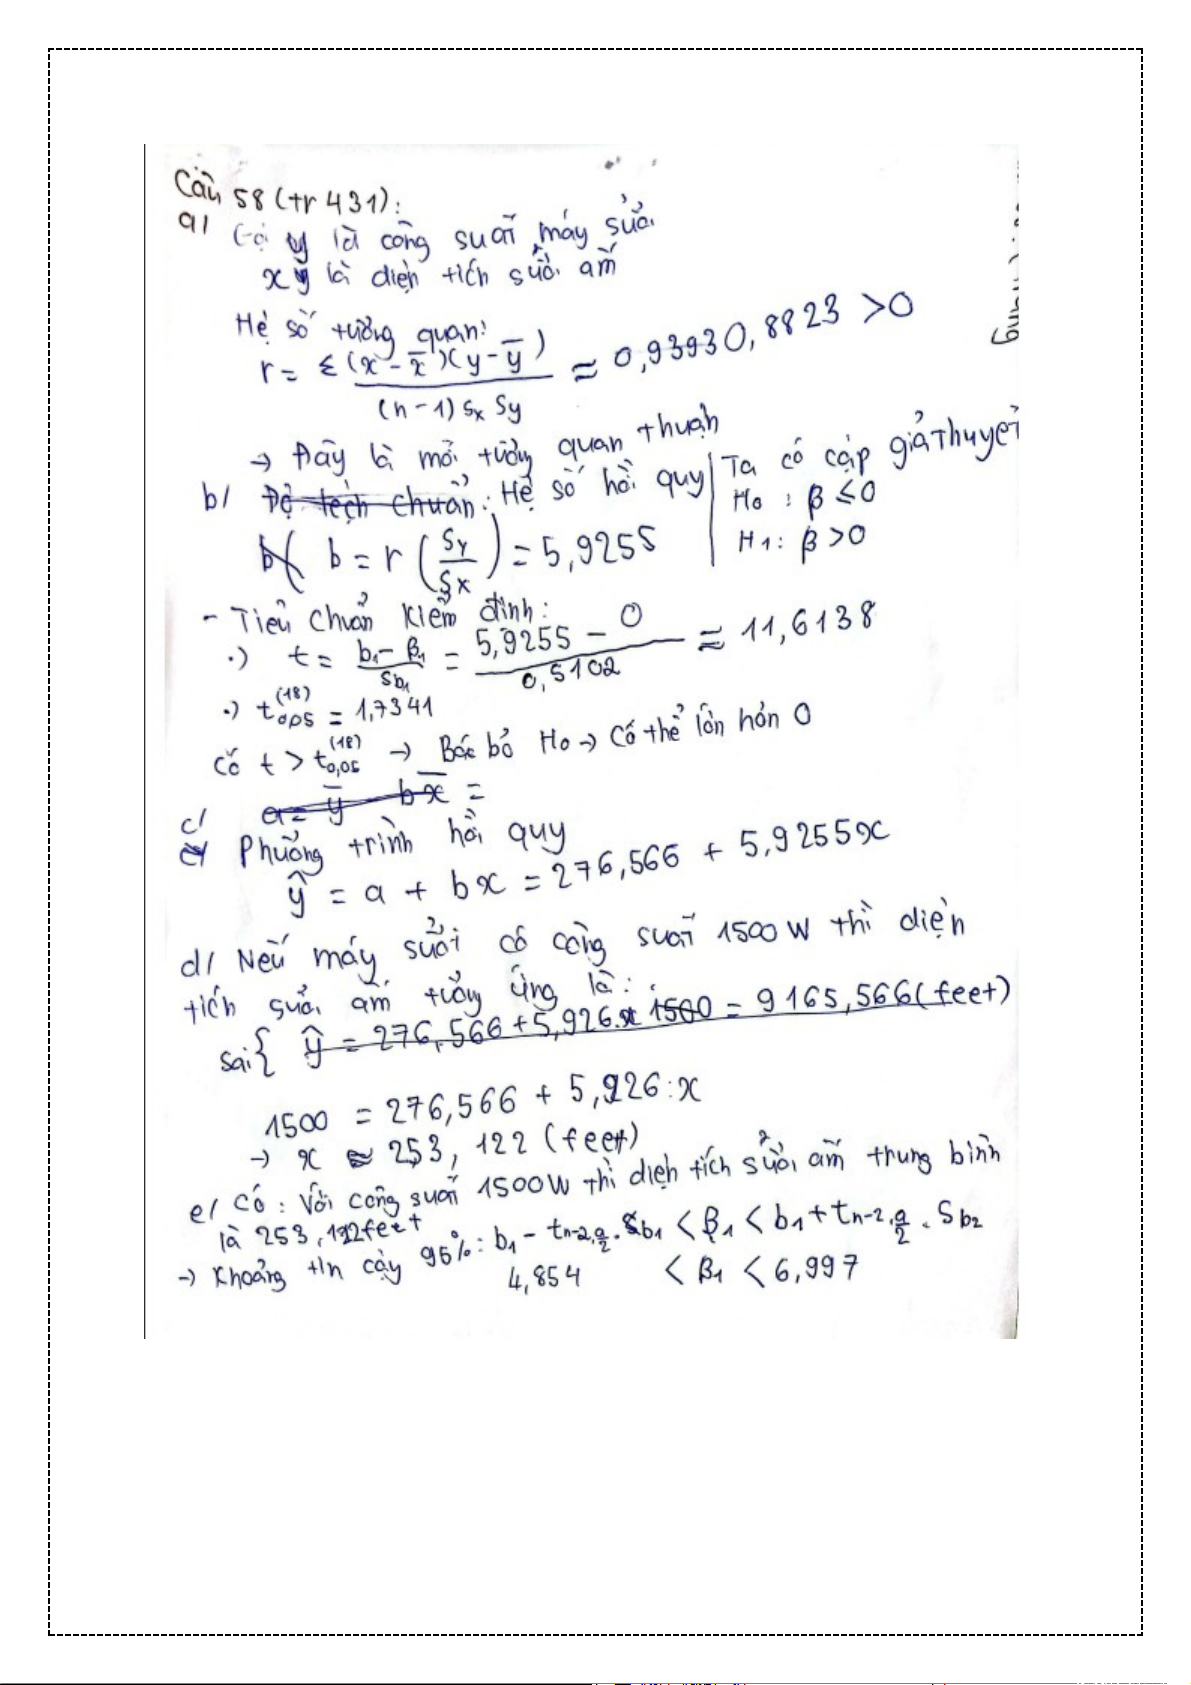 Câu 58 (tr 431):
a/ Gọi y là công suất máy sưởi
x là diện tích sưởi ấm
Hệ số tương quan:
r = Σ(x - x̄)(y - ȳ) / (n-1) Sx Sy ≈ 0,93930,8823 > 0
→ Đây là mối tương quan thuận
b/ Độ lệch chuẩn: Hệ số hồi quy | Ta có cặp giả thuyết
H0 : β ≤ 0
b = r (Sy/Sx) = 5,9255 | H1 : β > 0
- Tiêu chuẩn kiểm định:
·) t = (b1 - β1)/Sb1 = (5,9255 - 0)/0,5102 ≈ 11,6138
·) t0,05(18) = 1,7341
Có t > t0,05(18) → Bác bỏ H0 → Có thể lớn hơn 0
c/ a = ȳ - bx̄ =
Phương trình hồi quy
ŷ = a + bx = 276,566 + 5,9255x
d/ Nếu máy sưởi có công suất 1500W thì diện
tích sưởi ấm tương ứng là:
sai{ ŷ = 276,566 + 5,926.x 1500 = 9165,566 (feet)
1500 = 276,566 + 5,926.x
→ x ≈ 253,122 (feet)
e/ Có: Với công suất 1500W thì diện tích sưởi ấm trung bình
là 253,122feet
→ Khoảng tin cậy 95%: b1 - tn-2,α/2 . Sb1 < β1 < b1 + tn-2,α/2 . Sb2
4,854 < β1 < 6,997